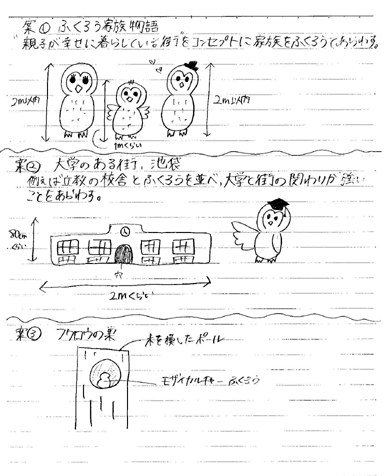 案① ふくろう家族物語
"親子が幸せに暮らしている街"をコンセプトに家族をふくろうであらわす。
2m以内
1mくらい
2m以内
案② 大学のある街、池袋
例えば立教の校舎とふくろうを並べ、大学と街の関わりが強い
ことをあらわす。
80cm
くらい
穴
2mくらい
案③ フクロウの巣
木を模したポール
モザイカルチャーふくろう